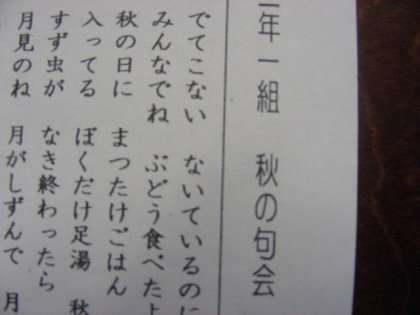 年一組　秋の句会
でてこない　ないているのに
みんなでね　ぶどう食べたよ
秋の日に　まつたけごはん
入ってる　ぼくだけ足湯　秋
すず虫が　なき終わったら
月見のね　月がしずんで　月